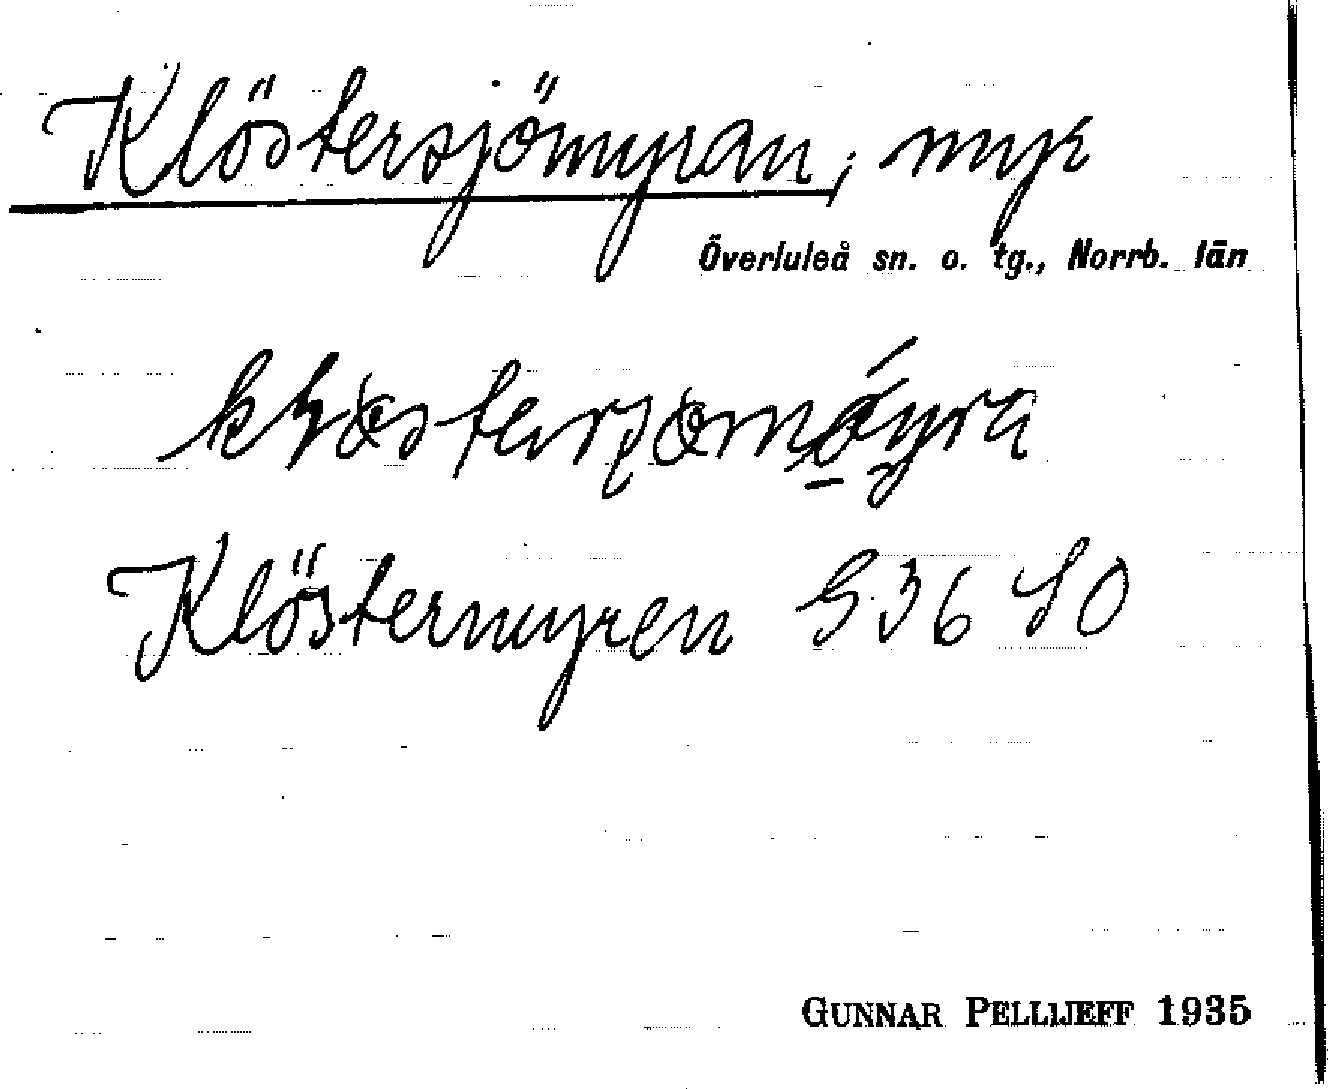 Klöstersjömyran, myr
Överluleå sn. o. tg., Norrb. län
Klöstermyren G36 SO
GUNNAR PELLIJEFF 1935